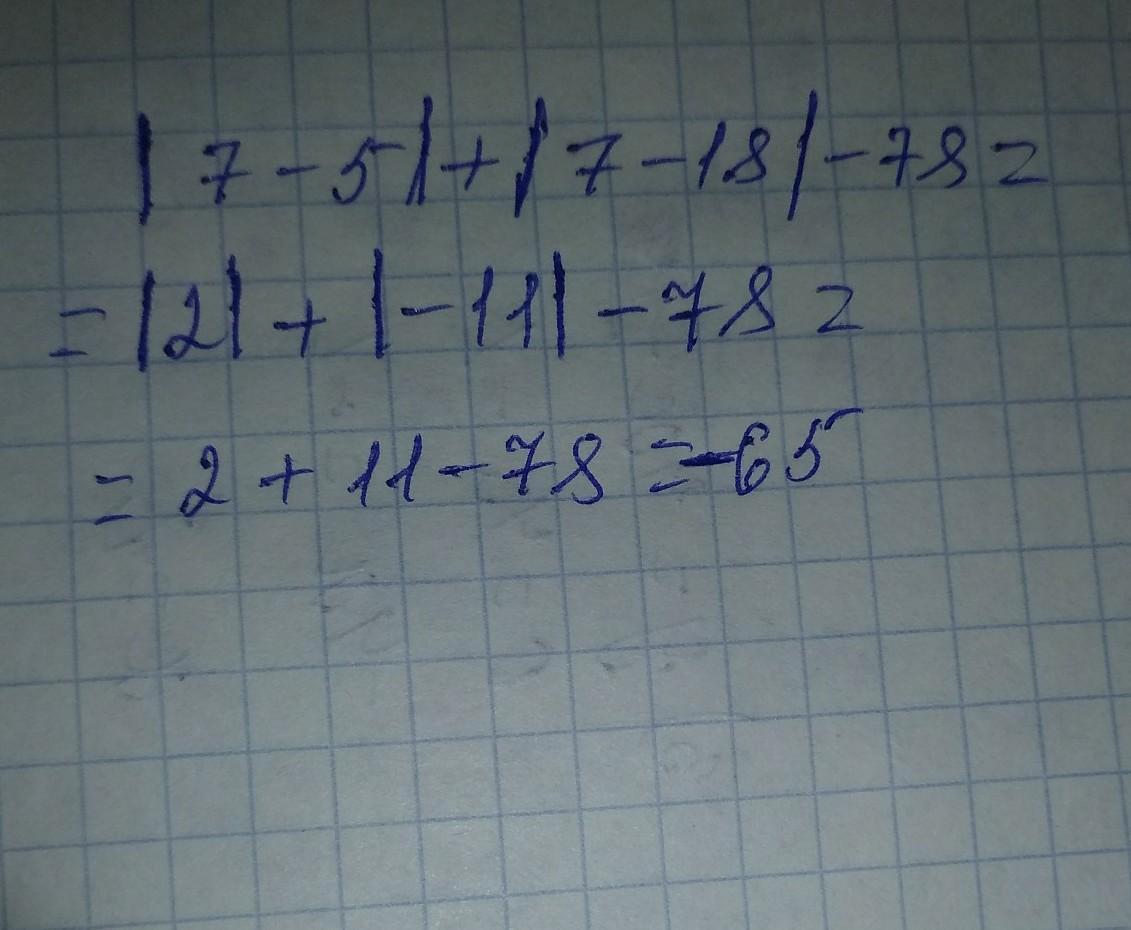 |7-5|+|7-18|-78=
=|2|+|-11|-78=
=2+11-78=-65